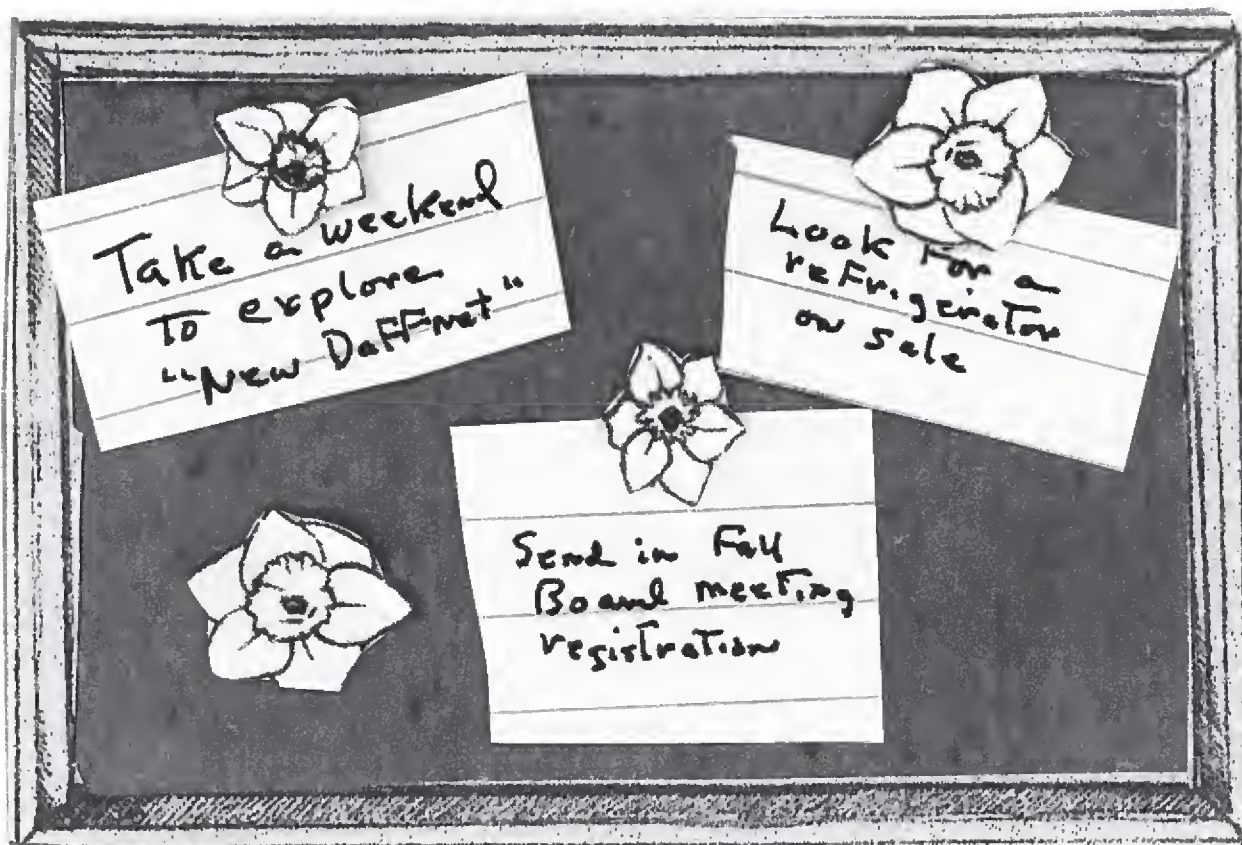 Take a weekend
To explore
"New Daffnet"
Look for a
refrigerator
on sale
Send in Fall
Board meeting
registration